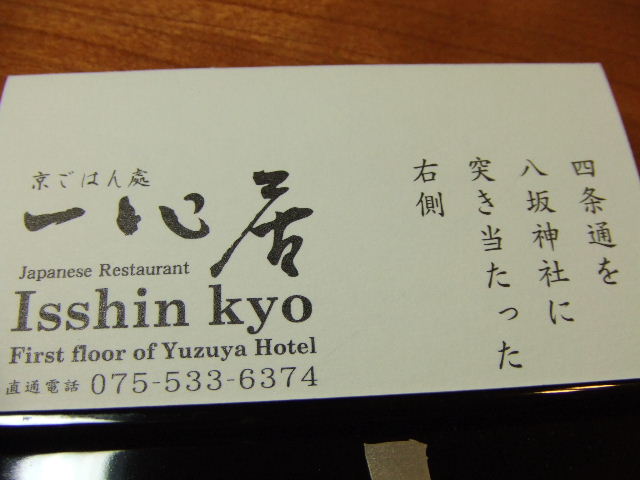 京ごはん處
一心居
Japanese Restaurant
Isshin kyo
First floor of Yuzuya Hotel
直通電話 075-533-6374
四条通を
八坂神社に
突き当たった
右側